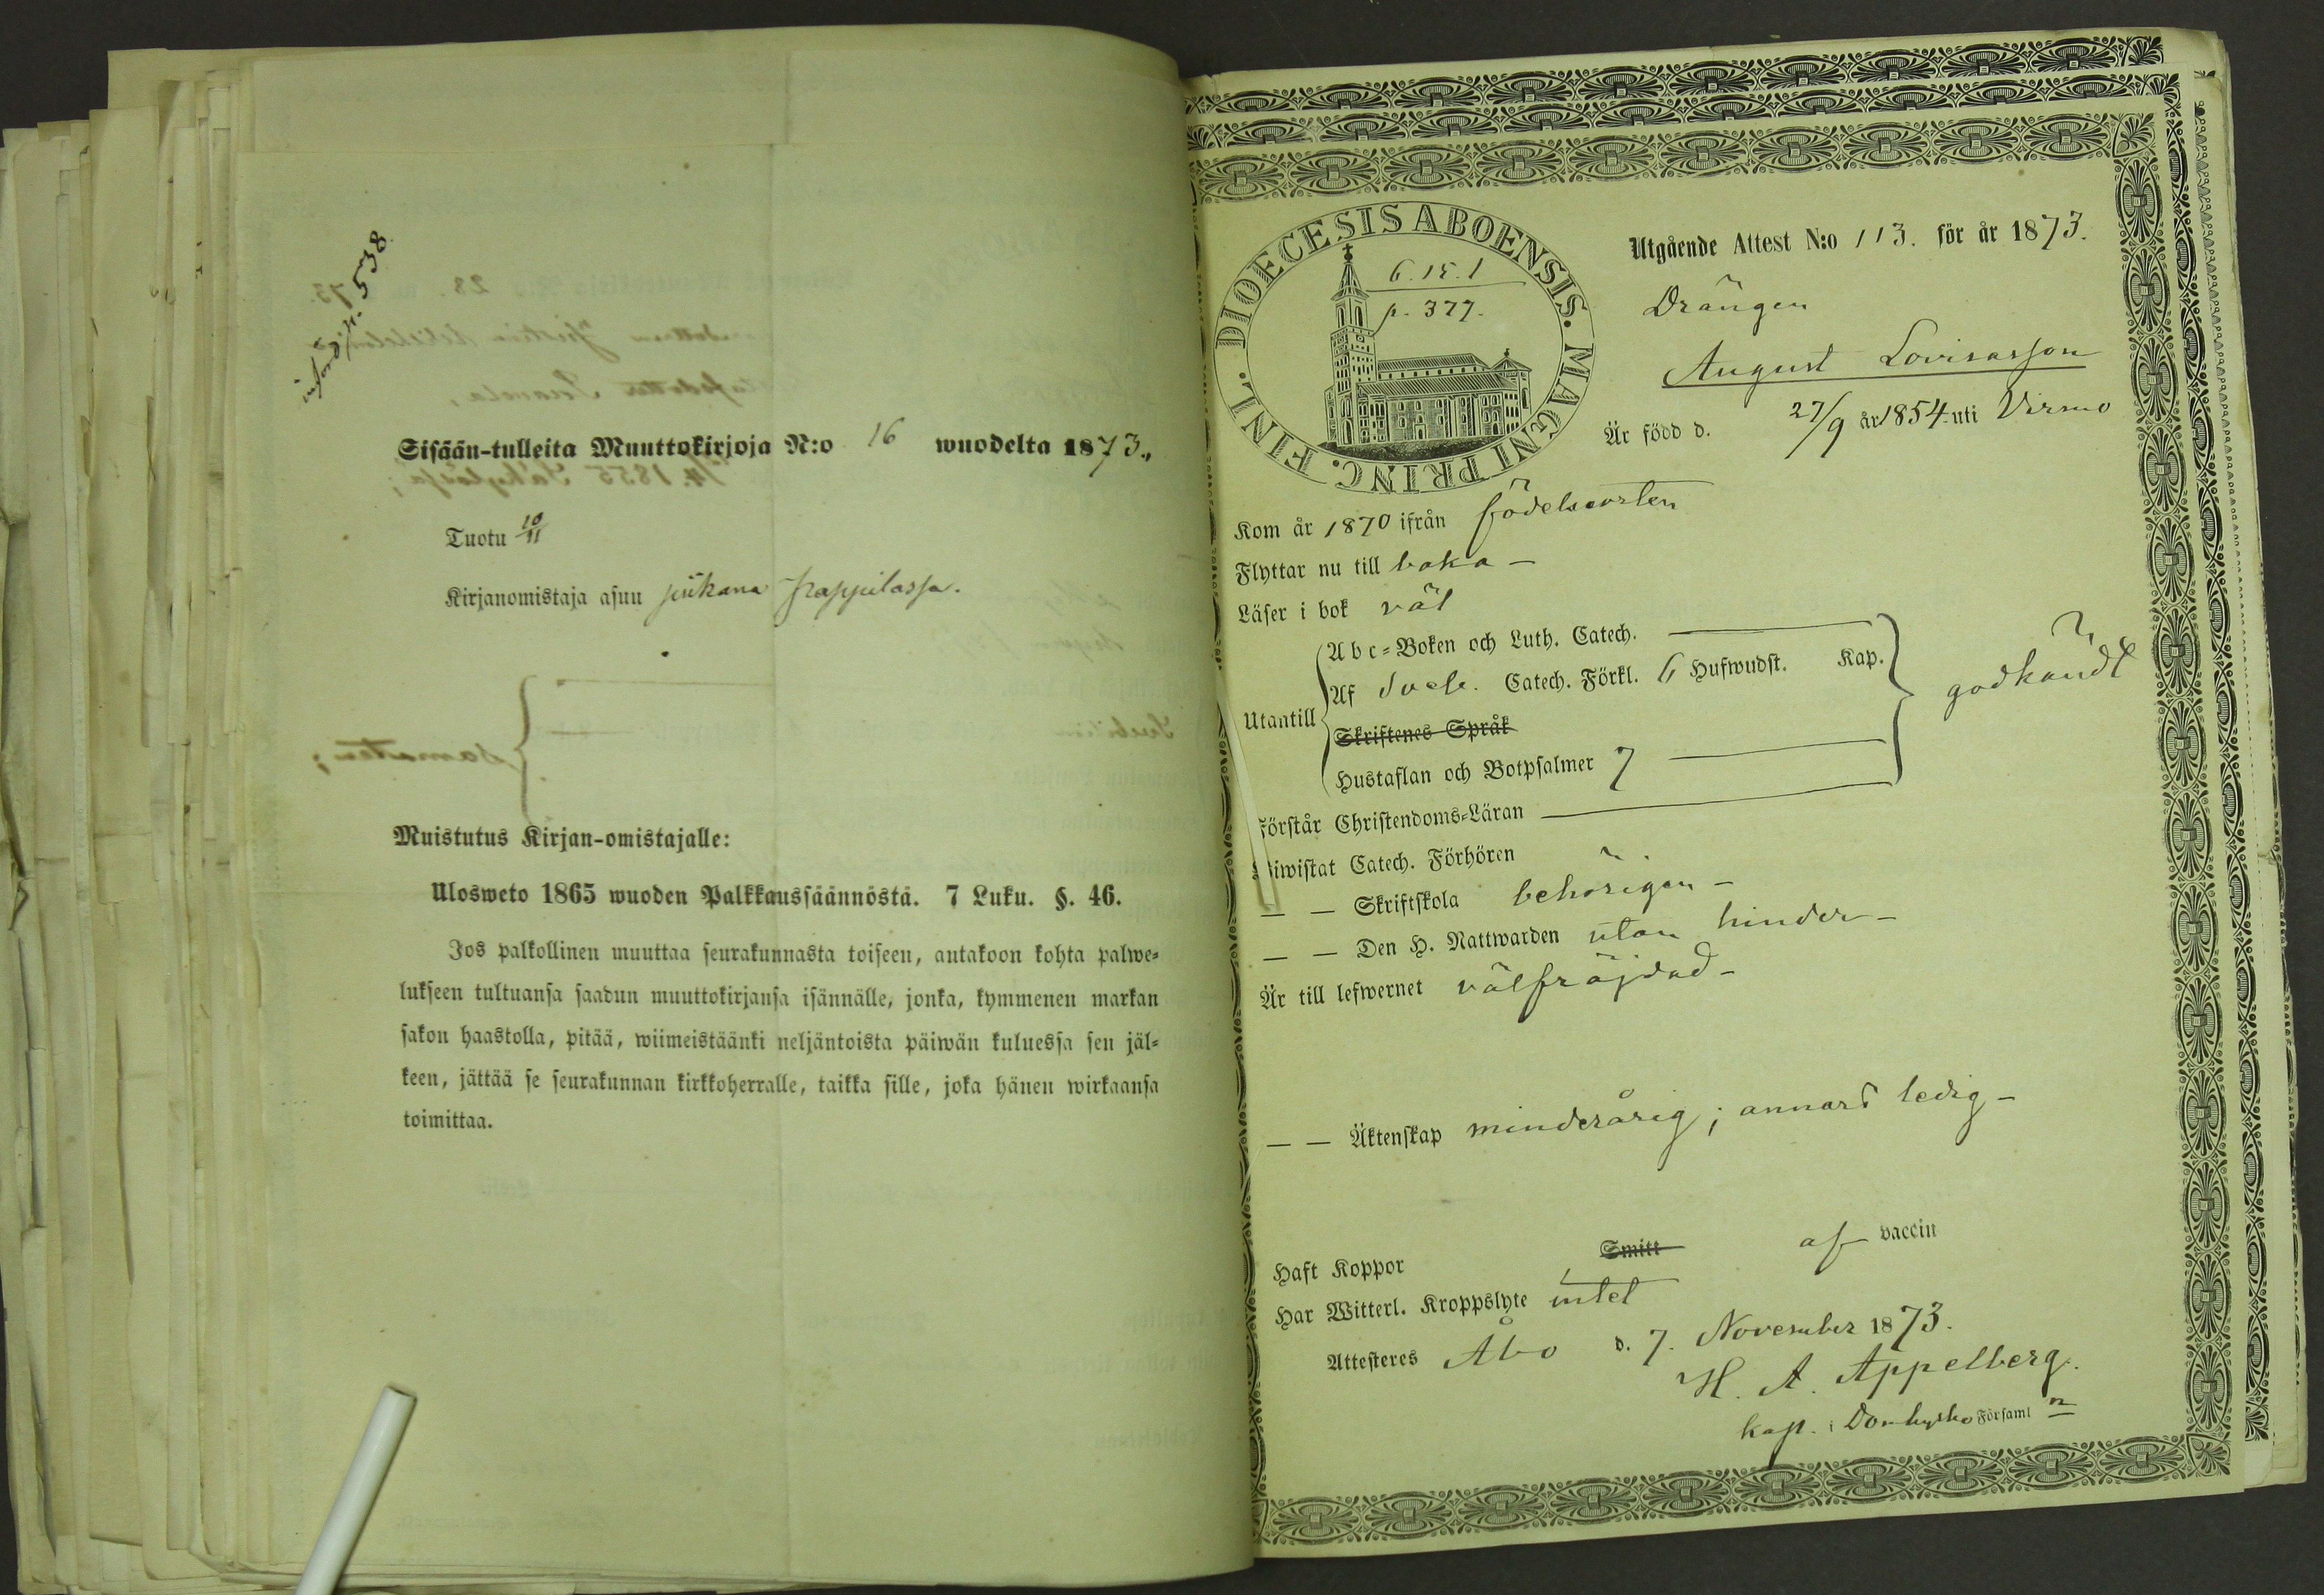 införd p. 538.
Sisään-tulleita Muuttokirjoja N:o 16 wuodelta 1873.,
Tuotu 10/11
Kirjanomistaja asuu piikana Pappilassa.
Muistutus Kirjan-omistajalle:
Ulosweto 1865 wuoden Palkkaussäännöstä. 7 Luku. §. 46.
Jos palkollinen muuttaa seurakunnasta toiseen, antakoon kohta palwe-
lukseen tultuansa saadun muuttokirjansa isännälle, jonka, kymmenen markan
sakon haastolla, pitää, wiimeistäänki neljäntoista päiwän kuluessa sen jäl-
keen, jättää se seurakunnan kirkkoherralle, taikka sille, joka hänen wirkaansa
toimittaa.
DIOECESIS ABOENSIS. MAGNI PRINC. FINL.
6.15.1
p. 377.
Utgående Attest N:o 113. för år 1873.
Drängen
August Lovisasson
Är född d. 27/9 år 1854 uti Virmo
Kom år 1870 ifrån födelseorten
Flyttar nu till baka –
Läser i bok väl
Utantill
Abc-Boken och Luth. Catech.
Af Sveb. Catech. Förkl. 6 Hufwudst. Kap.
Skriftenes Språk
Hustaflan och Botpsalmer 7
godkändt
Förstår Christendoms-Läran
Biwistat Catech. Förhören
— — Skriftskola behörigen –
— — Den H. Nattwarden utan hinder –
Är till lefwernet välfräjdad –
— — Äktenskap minderårig; annars ledig –
Haft Koppor Smitt af vaccin
Har Witterl. Kroppslyte intet
Attesteres Åbo d. 7. November 1873.
H. A. Appelberg.
kap. i Domkyrko Församl n